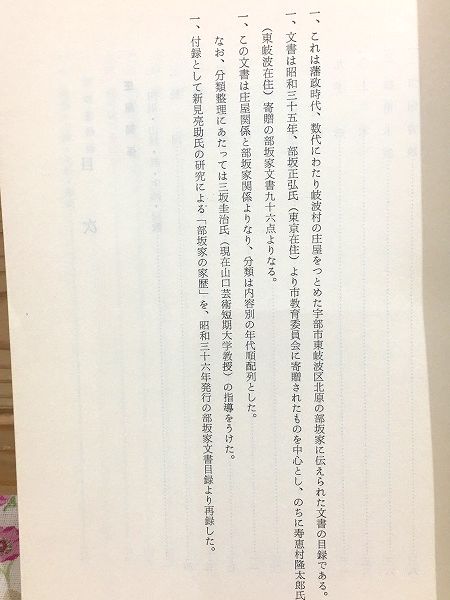 一、これは藩政時代、数代にわたり岐波村の庄屋をつとめた宇部市東岐波区北原の部坂家に伝えられた文書の目録である。
一、文書は昭和三十五年、部坂正弘氏（東京在住）より市教育委員会に寄贈されたものを中心とし、のちに寿恵村隆太郎氏
（東岐波在住）寄贈の部坂家文書九十六点よりなる。
一、この文書は庄屋関係と部坂家関係よりなり、分類は内容別の年代順配列とした。
なお、分類整理にあたっては三坂圭治氏（現在山口芸術短期大学教授）の指導をうけた。
一、付録として新見亮助氏の研究による「部坂家の家歴」を、昭和三十六年発行の部坂家文書目録より再録した。
目次